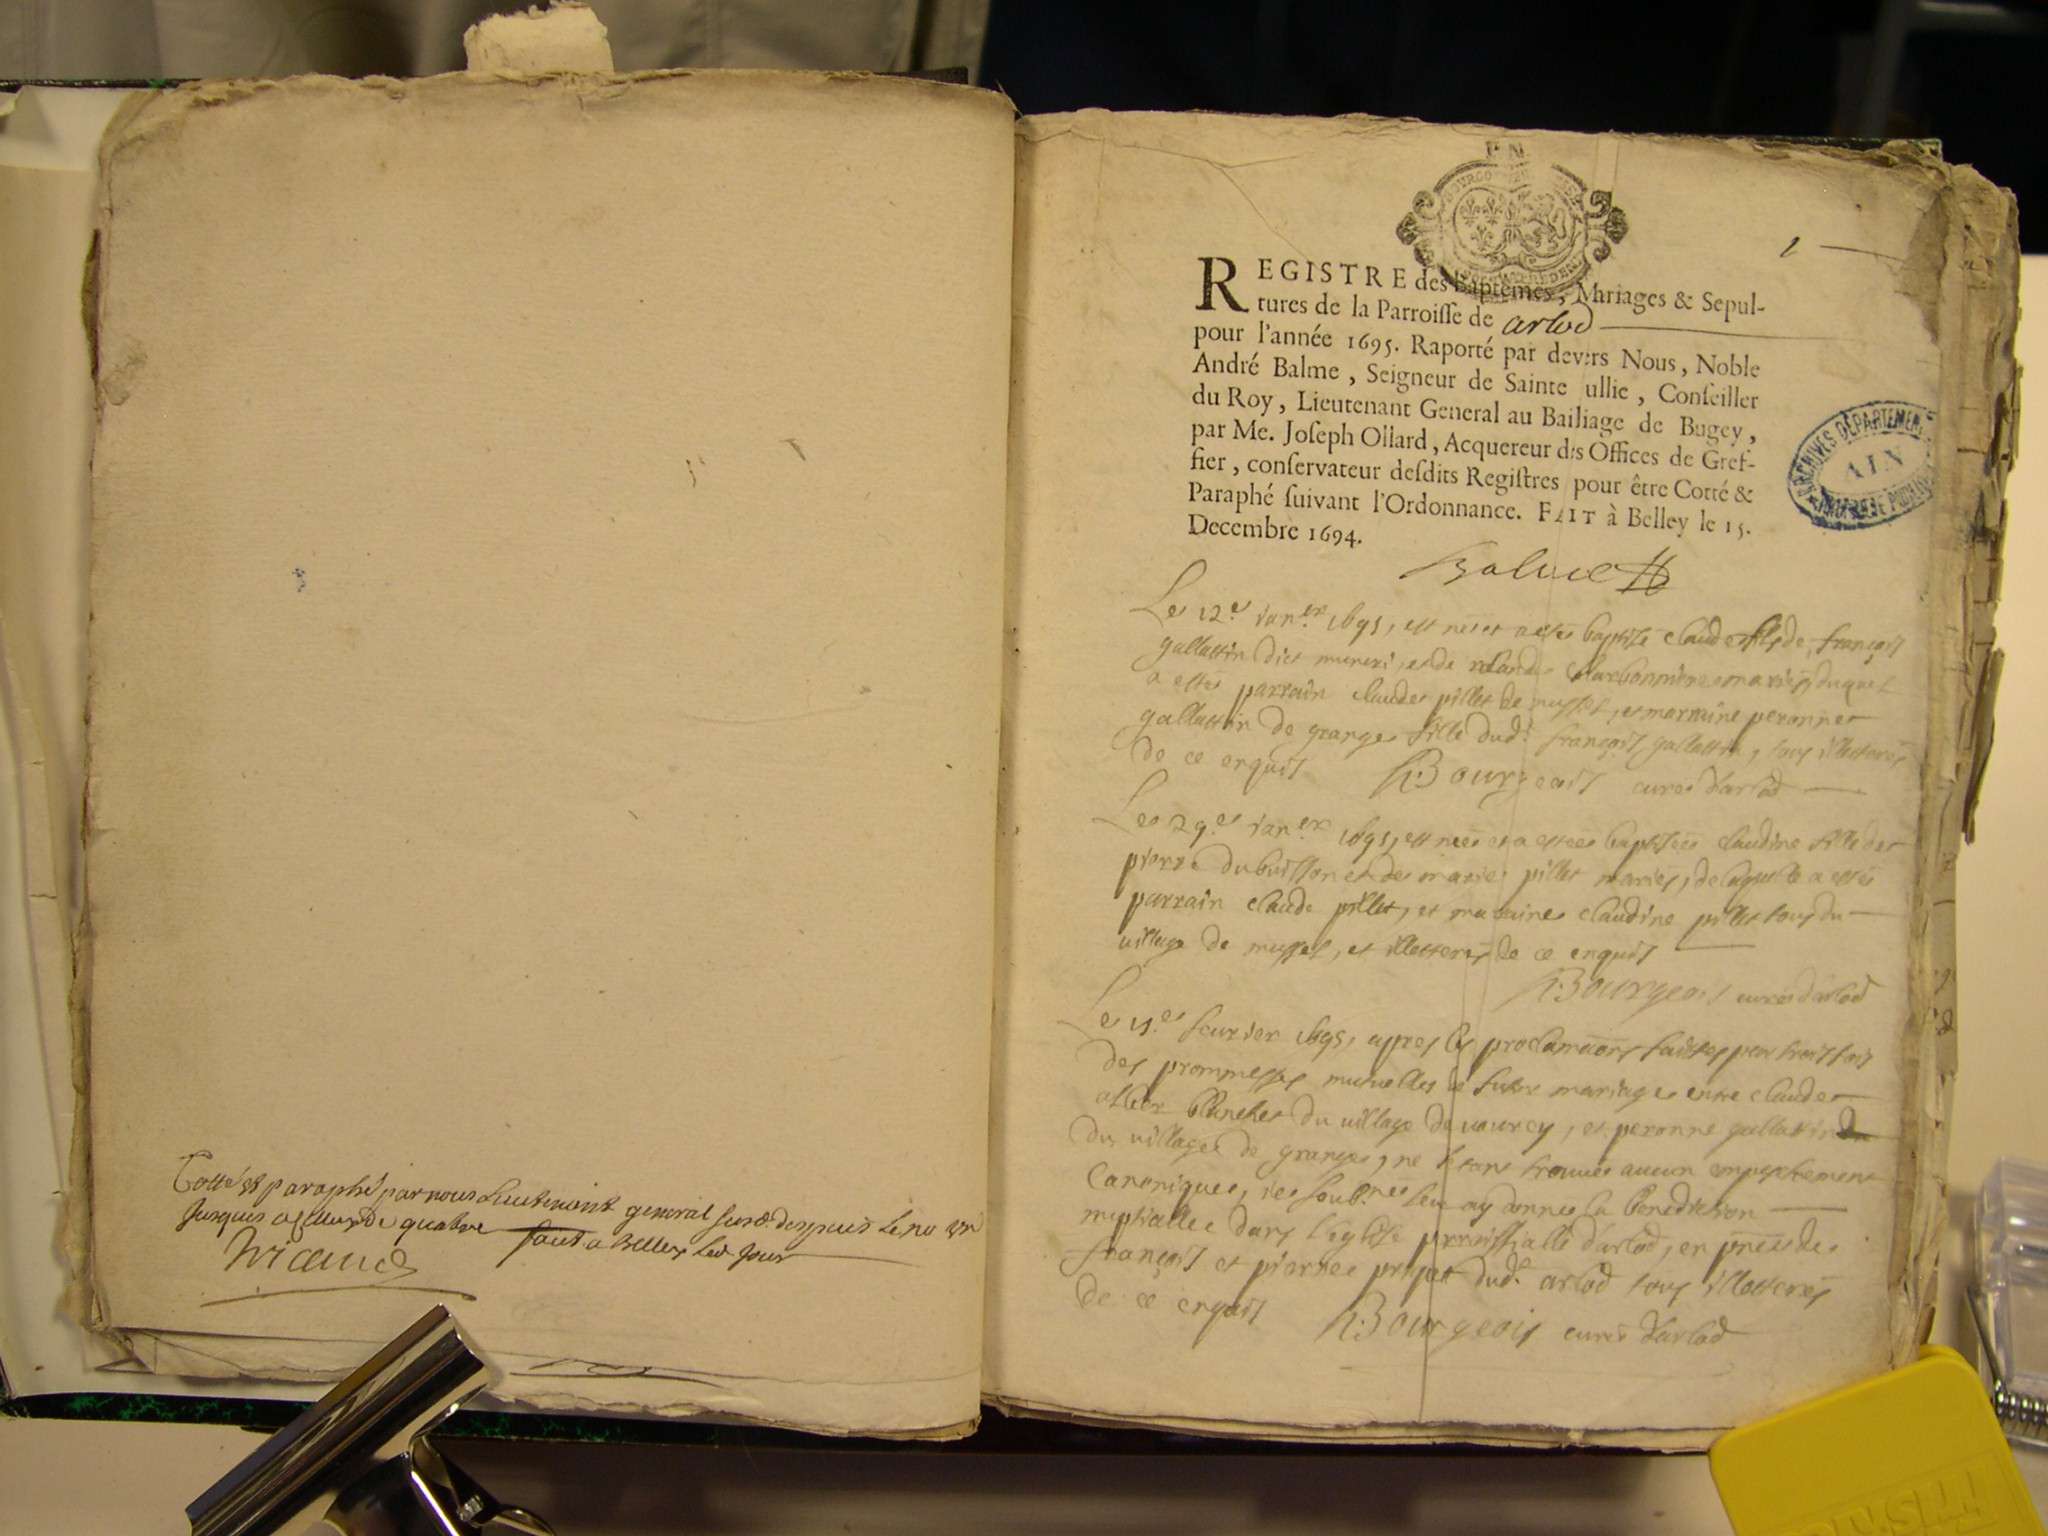 Cotté et paraphé par nous Lieutenant general susd. despuis le no un
Jusques a celluy de quatre fait a Belley led. Jour
UN
1
REGISTRE des Baptêmes, Mariages & Sepul-
tures de la Parroisse de arlod
pour l'année 1695. Raporté par devers Nous, Noble
André Balme, Seigneur de Sainte ullie, Conseiller
du Roy, Lieutenant General au Bailiage de Bugey,
par Me. Joseph Ollard, Acquereur des Offices de Gref-
fier, conservateur desdits Registres pour être Cotté &
Paraphé suivant l'Ordonnance. FAIT à Belley le 15.
Decembre 1694.
ARCHIVES DÉPARTEMENT
AIN
Balme
Le 12e ianer 1695, est né et a esté baptisé claude fils de françois
gallattin dict muneri, et de rolande charbonniere mariés, duquel
a esté parrain claude pillet de mussel, et marraine peronne
gallattin de grange fille dud. françois gallattin, tous illetterés
de ce enquis Bourgeois curé d'arlod
Le 29e ianer 1695, est née et a estée baptisée claudine fille de
pierre dubuisson et de marie pillet mariés, de laquelle a esté
parrain claude pillet, et maraine claudine pillet tous du
village de mussel, et illetterés de ce enquis
Bourgeois curé d'arlod
Le 15e feurier 1695, apres les proclamaõns faittes par trois fois
des prommesses mutuelles de futur mariage entre claude
blanchet du village de vouurey, et peronne gallattin
du village de granges, ne s'etant trouué aucun empeschement
canonique, ie soub.né leur ay donné la benediction
nuptialle dans l'eglise parroissialle d'arlod, en pñce de
françois et pierre dud. arlod tous illetterés
de ce enquis Bourgeois curé d'arlod